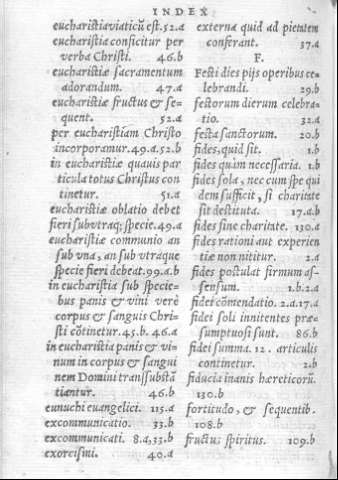 INDEX
eucharistia viaticũ est. 52.a
eucharistia conficitur per
verba Christi. 46.b
eucharistiæ sacramentum
adorandum. 47.a
eucharistiæ fructus & se-
quent. 52.a
per eucharistiam Christo
incorporamur. 49.a. 52.b
in eucharistiæ quauis par
ticula totus Christus con
tinetur. 51.a
eucharistiæ oblatio debet
fieri sub vtraq; specie. 49.a
eucharistiæ communio an
sub vna, an sub vtraque
specie fieri debeat. 99.a.b
in eucharistia sub specie-
bus panis & vini verè
corpus & sanguis Chri-
sti cõtinetur. 45.b. 46.a
in eucharistia panis & vi-
num in corpus & sangui
nem Domini transsubstã
tiantur. 46.b
eunuchi euangelici. 115.a
excommunicatio. 33.b
excommunicati. 8.a, 33.b
exorcismi. 40.a
externa quid ad pietatem
conferant. 37.a
F.
Festi dies pijs operibus ce
lebrandi. 29.b
festorum dierum celebra-
tio. 32.a
festa sanctorum. 20.b
fides, quid sit. 1.b
fides quàm necessaria. 1.b
fides sola, nec cum spe qui
dem sufficit, si charitate
sit destituta. 17.a.b
fides sine charitate. 130.a
fides rationi aut experien
tiæ non nititur. 2.a
fides postulat firmum as-
sensum. 1.b. 2.a
fidei cõmendatio. 2.a. 17.a
fidei soli innitentes præ-
sumptuosi sunt. 86.b
fidei summa. 12. articulis
continetur. 2.b
fiducia inanis hæreticorũ.
130.b
fortitudo, & sequentib.
108.b
fructus spiritus. 109.b